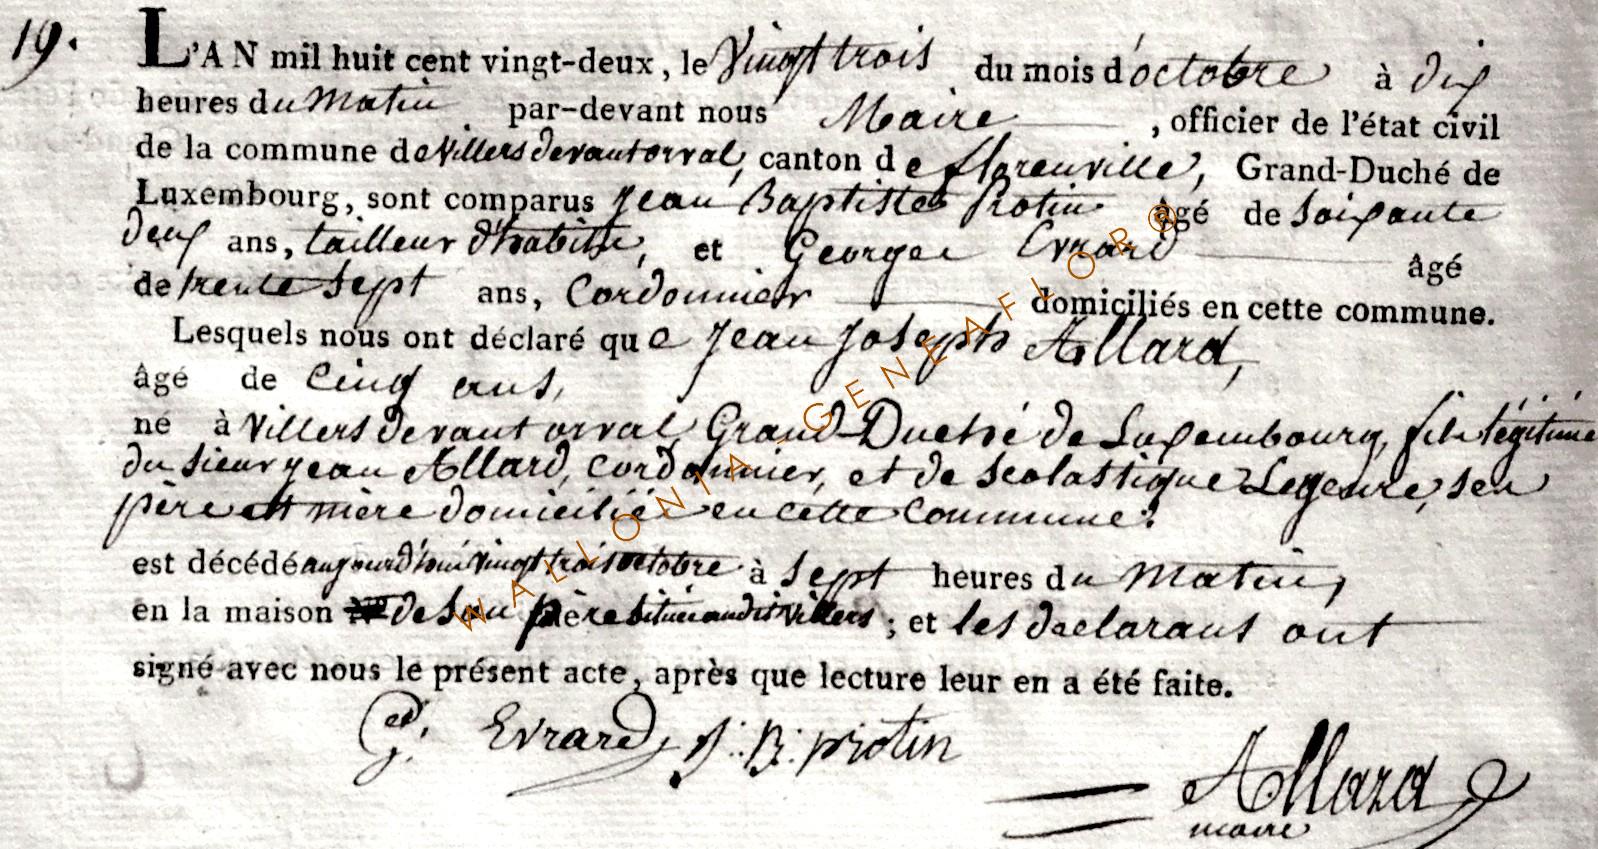 19.
L'AN mil huit cent vingt-deux, le Vingt trois du mois d'octobre à dix
heures du Matin par-devant nous Maire , officier de l'état civil
de la commune de Villers devant orval, canton de florenville, Grand-Duché de
Luxembourg, sont comparus Jean Baptiste Protin âgé de Soixante
deux ans, tailleur d'habits, et George Evrard âgé
de trente Sept ans, Cordonnier domiciliés en cette commune.
Lesquels nous ont déclaré que Jean Joseph Allard,
âgé de Cinq ans,
né à Villers devant orval, Grand-Duché de Luxembourg, fils légitime
du Sieur jean Allard, cordonnier, et de Scolastique Legendre, ses
père et mère domiciliés en cette Commune.
est décédé aujourd'hui vingt trois octobre à Sept heures du Matin,
en la maison de Son père située audit Villers ; et les declarans ont
signé avec nous le présent acte, après que lecture leur en a été faite.
G. Evrard J. B. protin
Allard
maire
WALLONIA-GENEAFLOR®